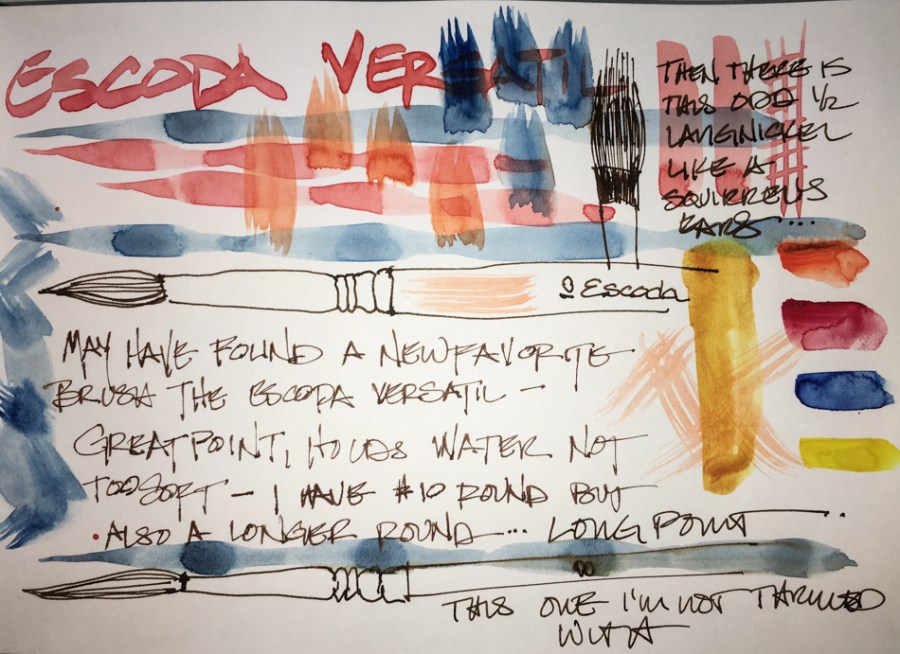 ESCODA VERSATIL
THEN THERE IS
THIS ODD 1/2
LANGNICKEL
LIKE A
SQUIRRELS
EARS....
Escoda
MAY HAVE FOUND A NEW FAVORITE
BRUSH THE ESCODA VERSATIL -
GREAT POINT, HOLDS WATER NOT
TOO SOFT - I HAVE #10 ROUND BUT
ALSO A LONGER ROUND ... LONG POINT ..
THIS ONE I'M NOT
WITH